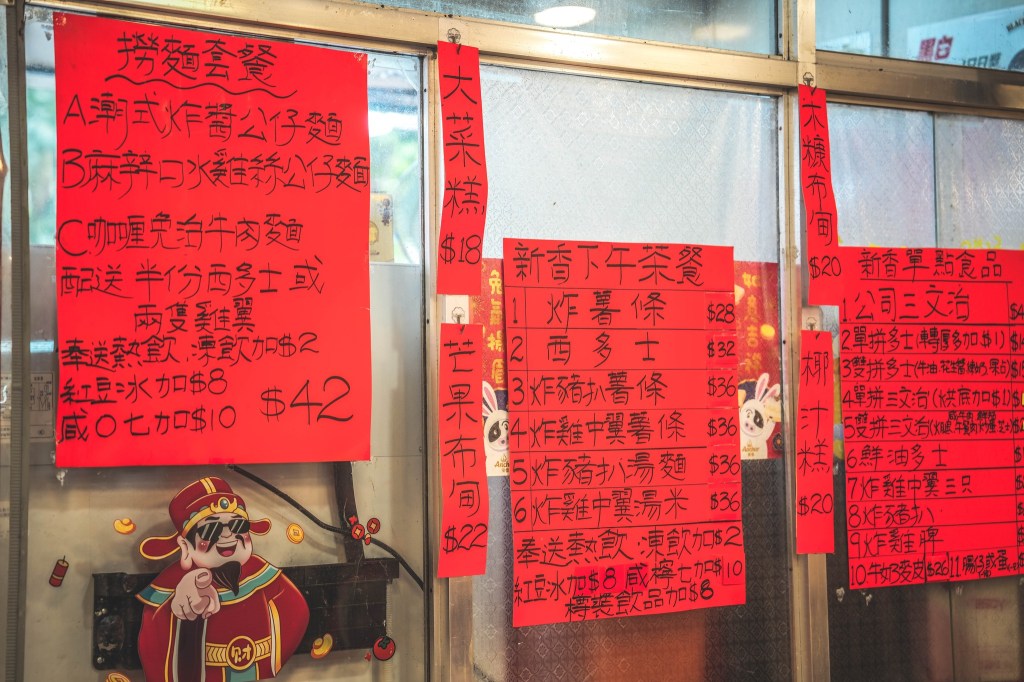 撈麵套餐
A潮式炸醬公仔麵
B麻辣口水雞絲公仔麵
C咖喱免治牛肉麵
配送半份西多士或
兩隻雞翼
奉送熱飲.凍飲加$2
紅豆冰加$8
咸〇七加$10
$42
大菜糕
$18
芒果布甸
$22
新香下午茶餐
1 炸薯條 $28
2 西多士 $32
3炸豬扒薯條 $36
4炸雞中翼薯條 $36
5炸豬扒湯麵 $36
6炸雞中翼湯米 $36
奉送熱飲.凍飲加$2
紅豆冰加$8 咸檸七加$10
樽裝飲品加$8
木糠布甸
$20
椰汁糕
$20
新香單點食品
1公司三文治
2單拼多士(轉厚多加$1)
3雙拼多士
4單拼三文治(烘底加$1)
5雙拼三文治
6鮮油多士
7炸雞中翼三只
8炸豬扒
9炸雞脾
10牛奶麥皮$26
11
財
Anchor
黑白